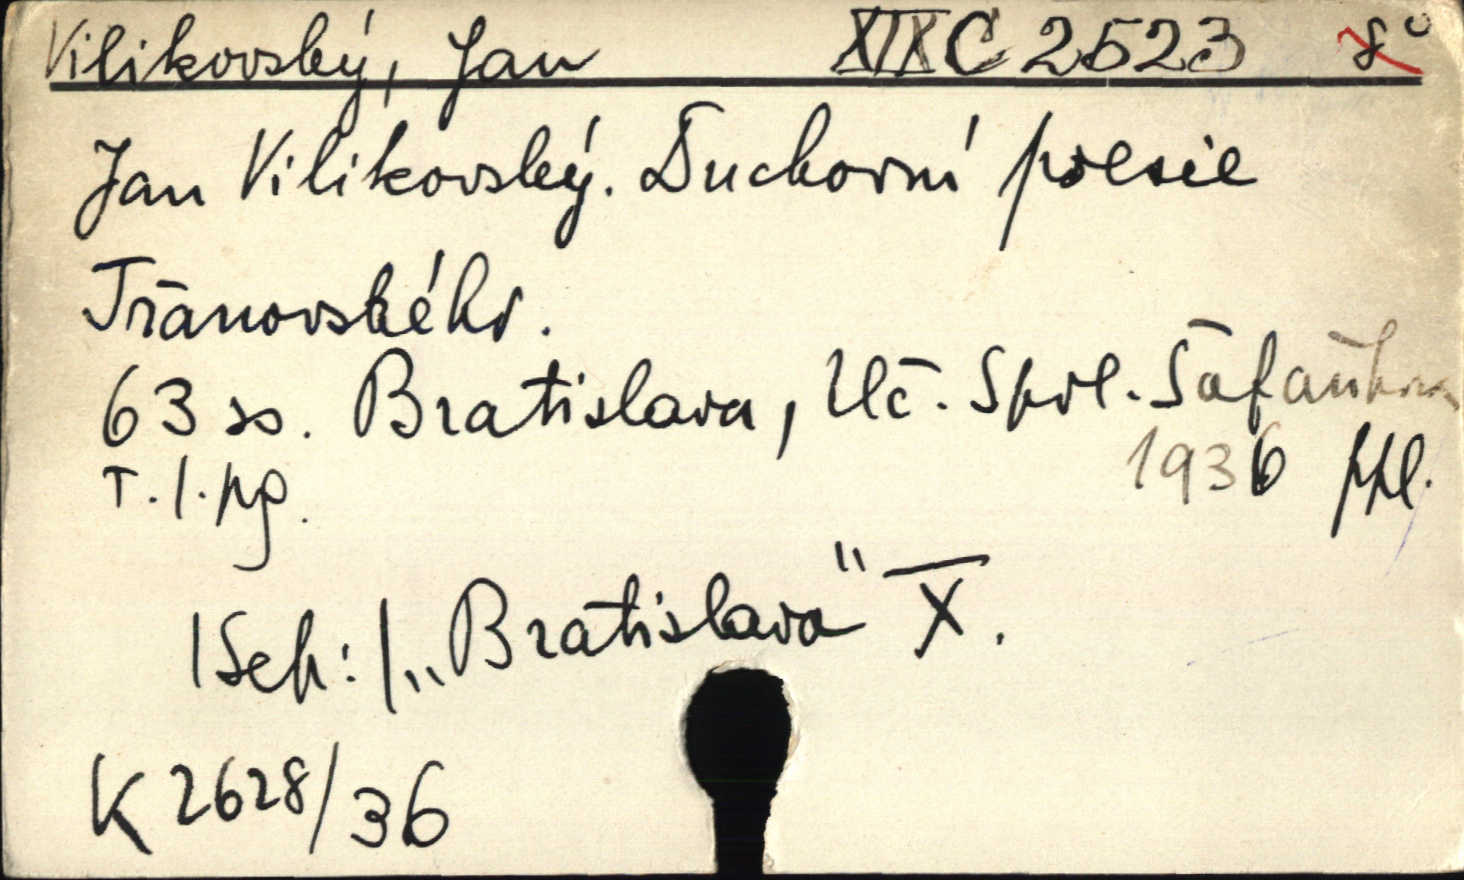 Vilikovský, Jan XIX C 2523 8°
Jan Vilikovský. Duchovní poesie
Třanovského.
63 ss. Bratislava, Uč. Spol. Šafaříkova
1936 ppl.
T. 1. pg.
|Seh:| „Bratislava" X.
K 2628/36